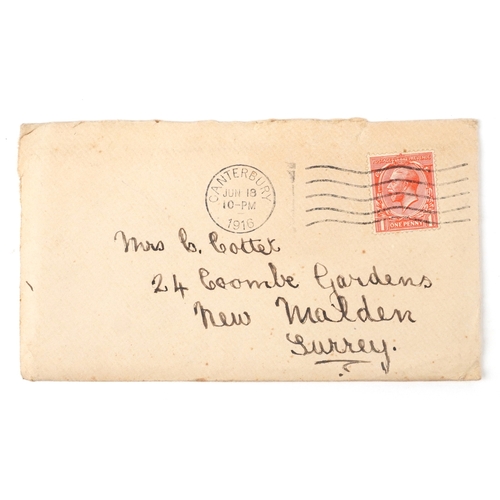 CANTERBURY
JUN 18
10-PM
1916
ONE PENNY
Mrs C. Cottet
24 Coombe Gardens
New Malden
Surrey.